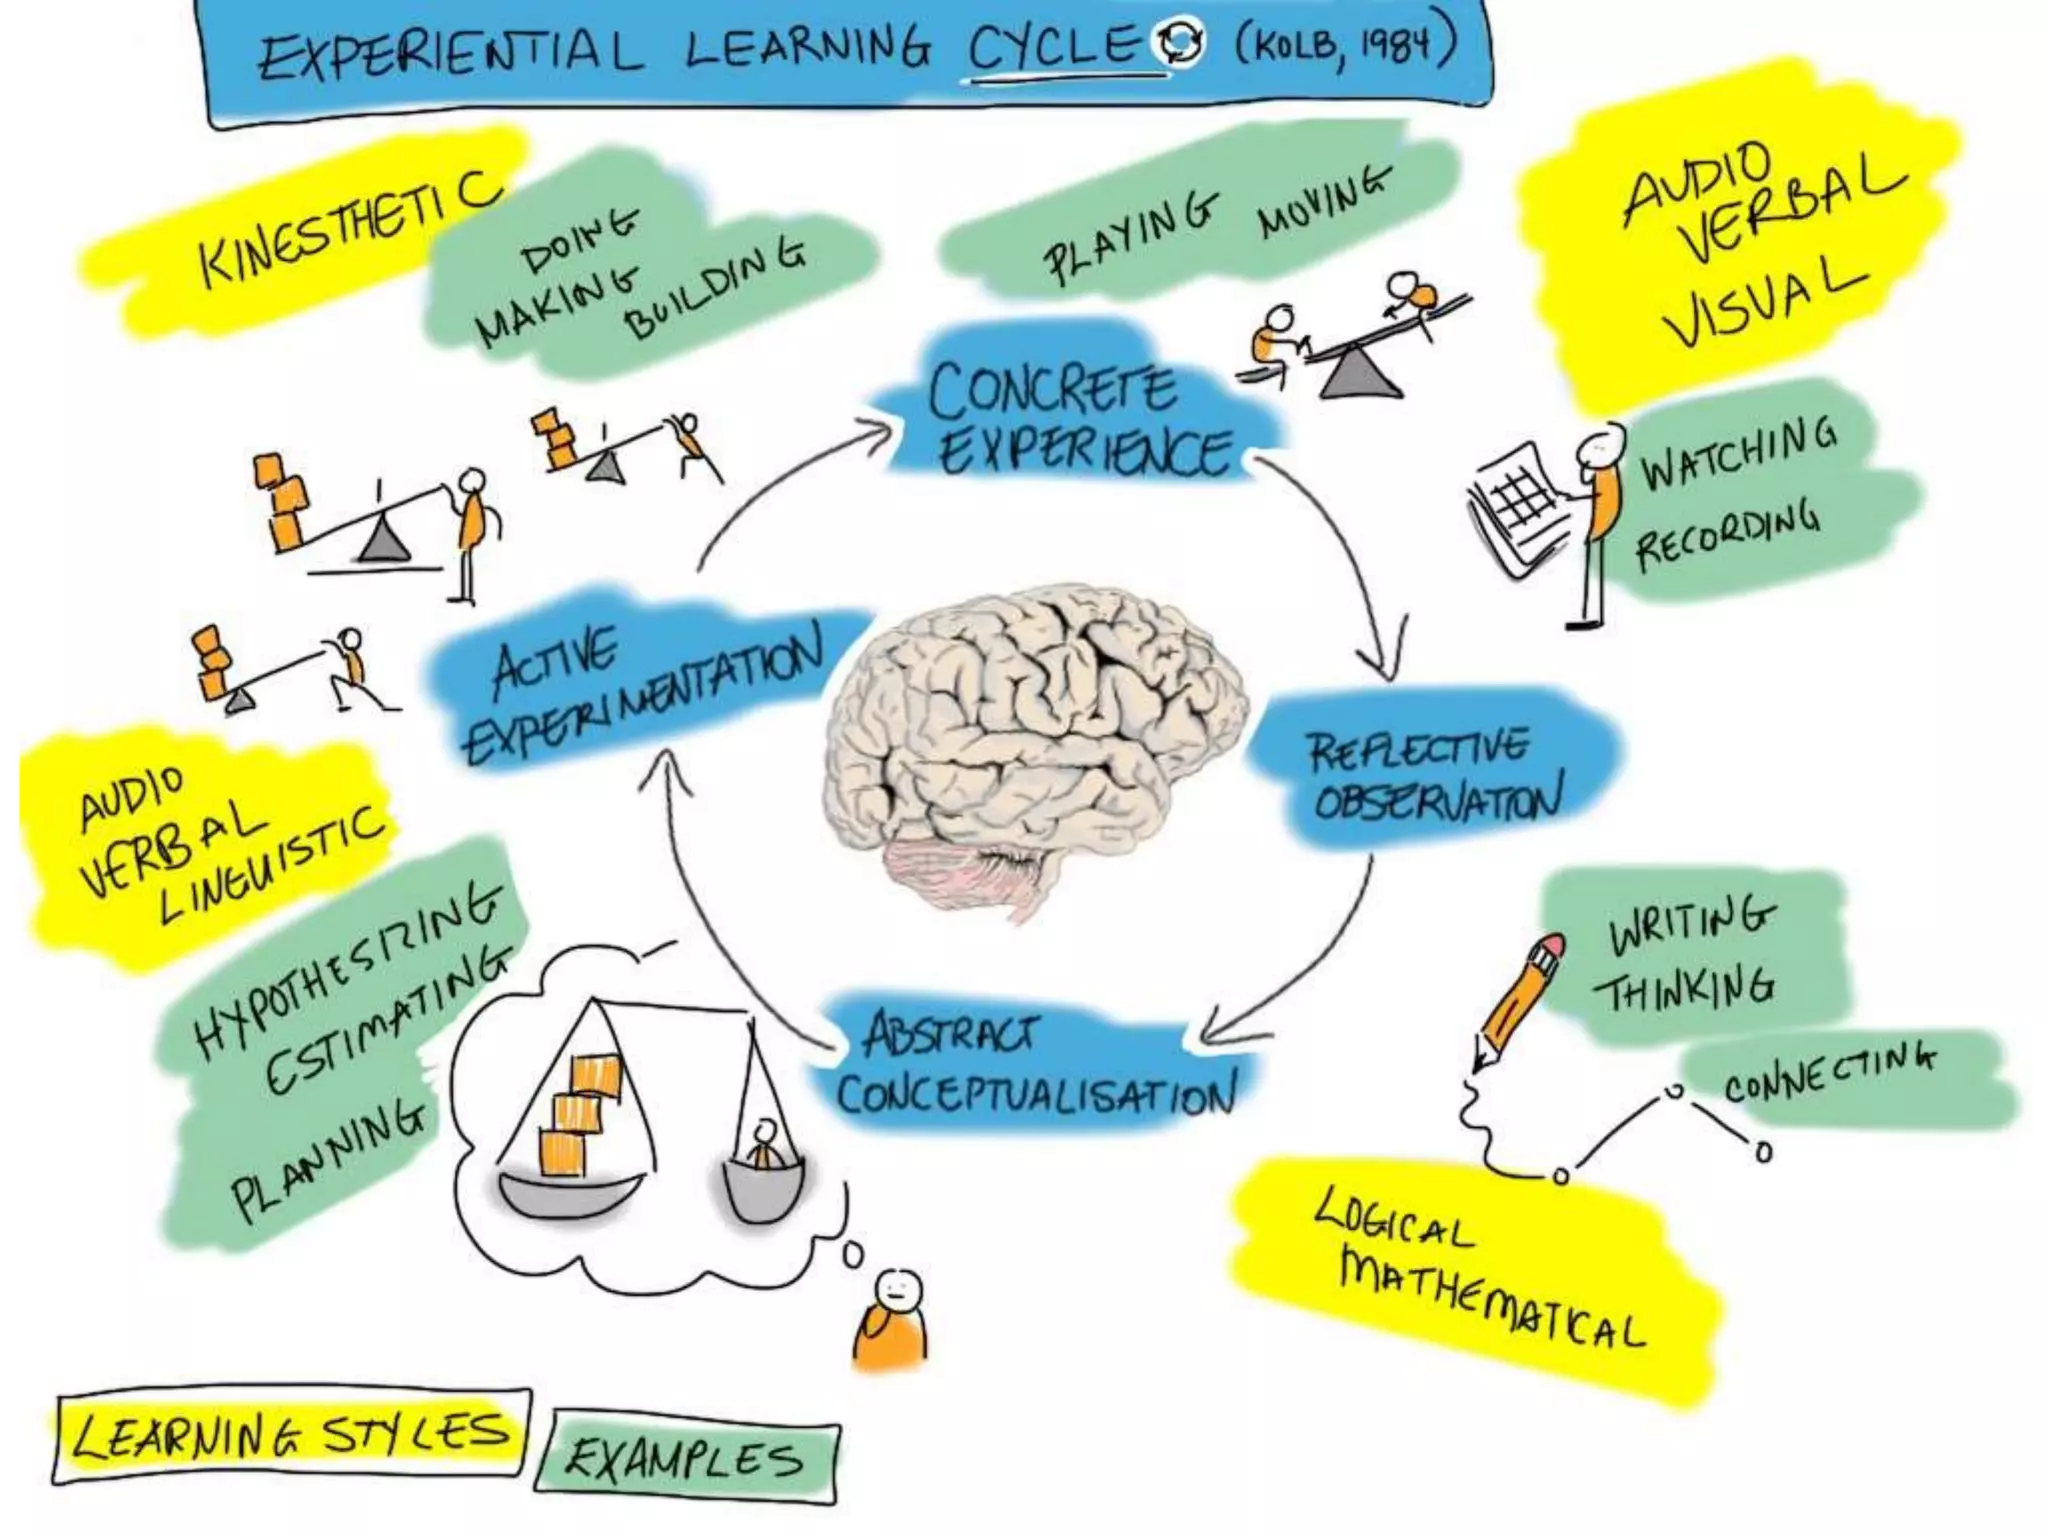 EXPERIENTIAL LEARNING CYCLE (KOLB, 1984)
KINESTHETIC
DOING
MAKING
BUILDING
PLAYING MOVING
AUDIO
VERBAL
VISUAL
CONCRETE
EXPERIENCE
WATCHING
RECORDING
ACTIVE
EXPERIMENTATION
REFLECTIVE
OBSERVATION
AUDIO
VERBAL
LINGUISTIC
HYPOTHESIZING
ESTIMATING
PLANNING
ABSTRACT
CONCEPTUALISATION
WRITING
THINKING
CONNECTING
LOGICAL
MATHEMATICAL
LEARNING STYLES
EXAMPLES